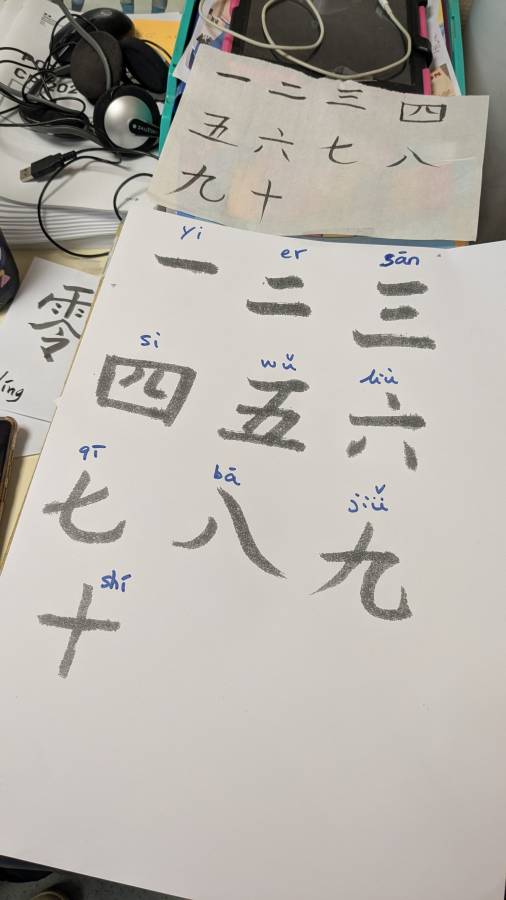 一 二 三 四
五 六 七 八
九 十
yi er sān
一 二 三
si wǔ liù
四 五 六
qī bā jiǔ
七 八 九
shí
十
零